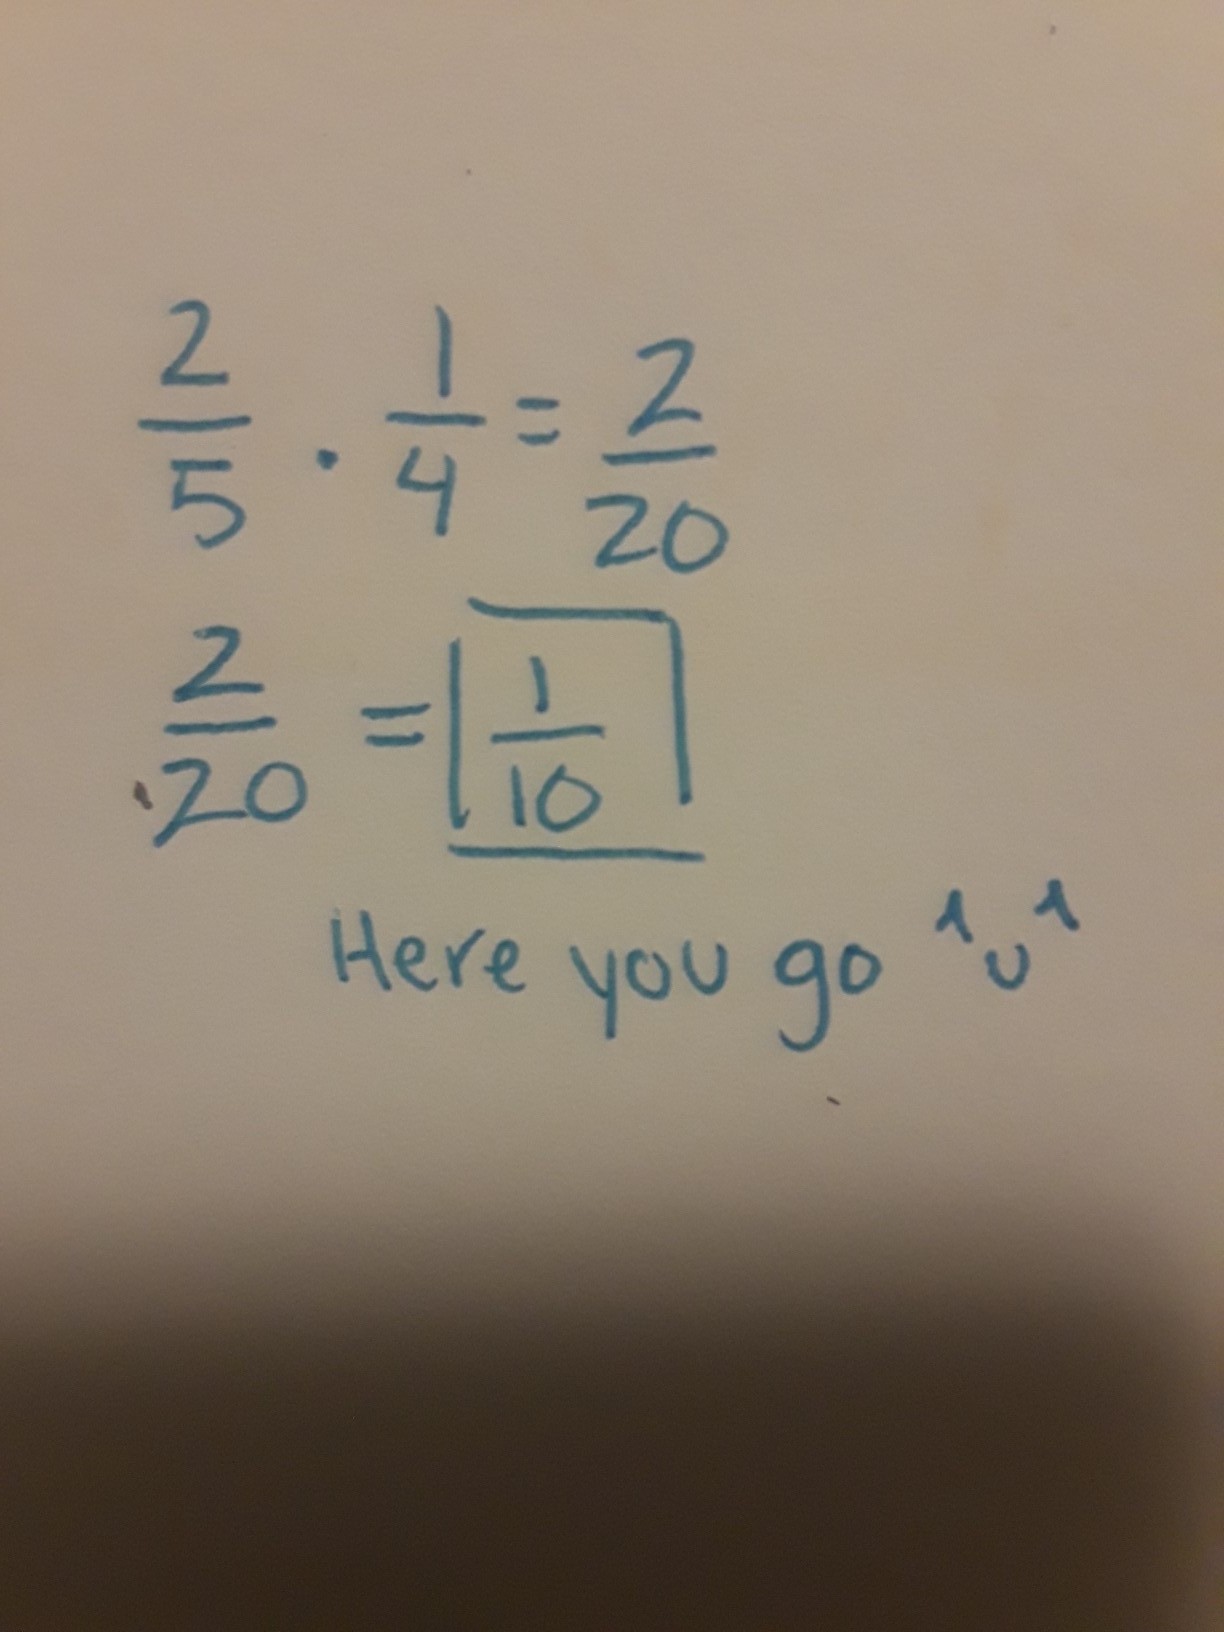 2/5 · 1/4 = 2/20
2/20 = 1/10
Here you go ^u^